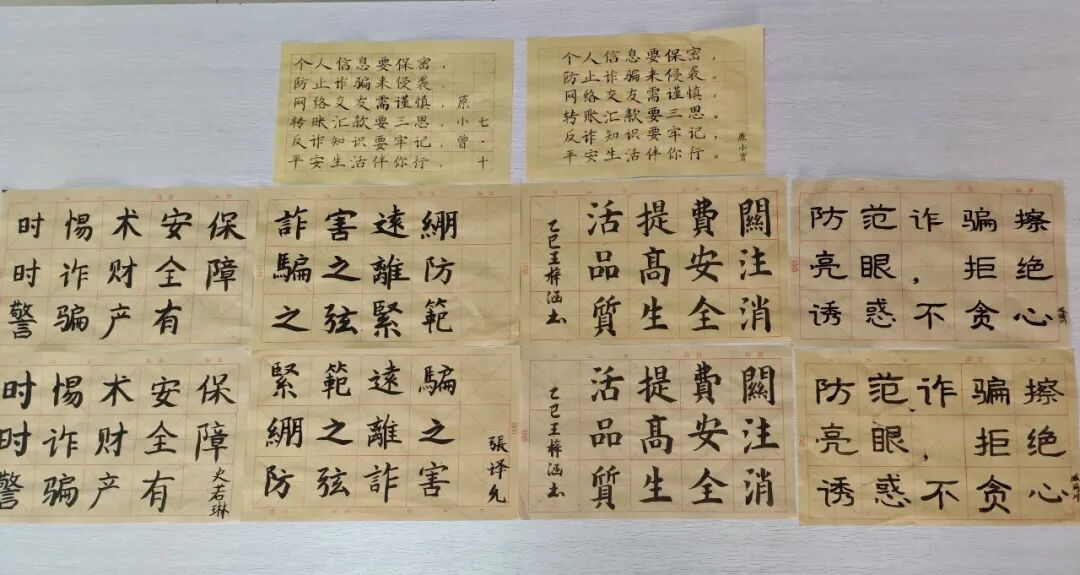 个人信息要保密，
防止诈骗来侵袭。
网络交友需谨慎，
转账汇款要三思。
反诈知识要牢记，
平安生活伴你行。
原小曾
七·十
个人信息要保密，
防止诈骗来侵袭。
网络交友需谨慎，
转账汇款要三思。
反诈知识要牢记，
平安生活伴你行。
原小曾
时时警
惕诈骗
术财产
安全有
保障
繃防範
遠離緊
害之弦
詐騙之
關注消
費安全
提高生
活品質
乙巳王梓涵书
防范诈骗擦
亮眼，拒绝
诱惑不贪心
时时警
惕诈骗
术财产
安全有
保障
史若琳
緊繃防
範之弦
遠離詐
騙之害
張墿允
關注消
費安全
提高生
活品質
乙巳王梓涵书
防范诈骗擦
亮眼，拒绝
诱惑不贪心